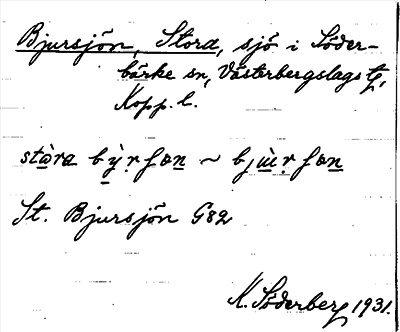 Bjursjön, Stora, sjö i Söder-
bärke sn, Västerbergslags tg,
Kopp. l.
St. Bjursjön G82
K. Söderberg 1931.